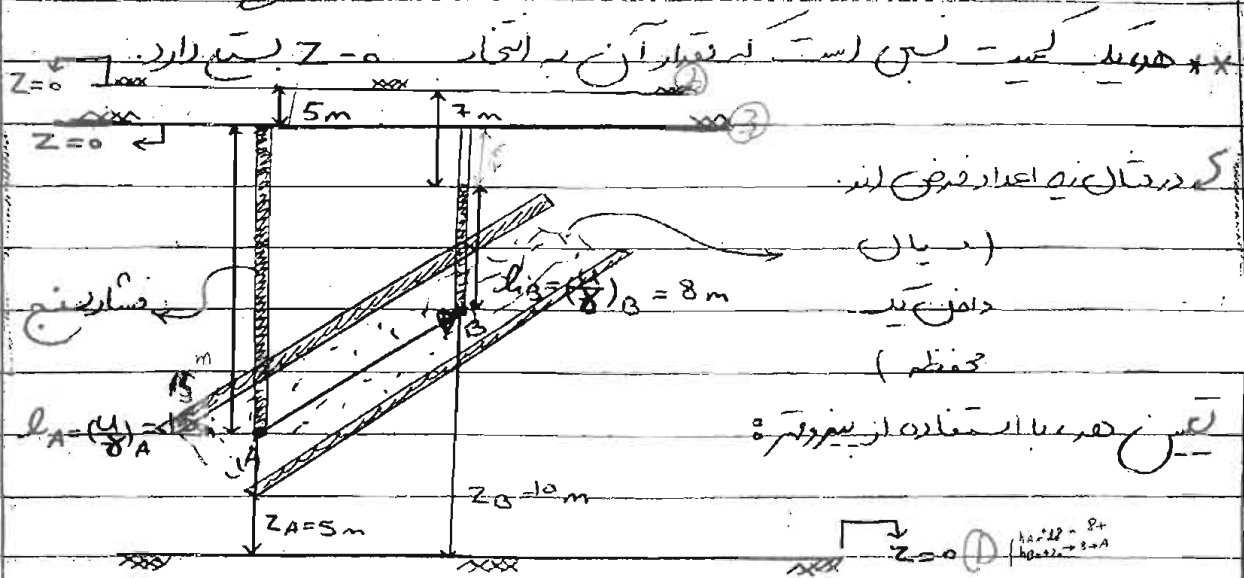 ** هد یک کمیت نسبی است که مقدار آن به انتخاب Z=0 بستگی دارد.
Z=0
②
5m
7m
Z=0
③
در مثال زیر اعداد فرضی اند.
(سیال
داخل یک
محفظه)
فشارسنج
l_B=(u/γ)_B = 8 m
B
l_A=(u/γ)_A=
m
A
تعیین هد، با استفاده از پیزومتر:
Z_B=10 m
Z_A=5 m
Z=0 ①